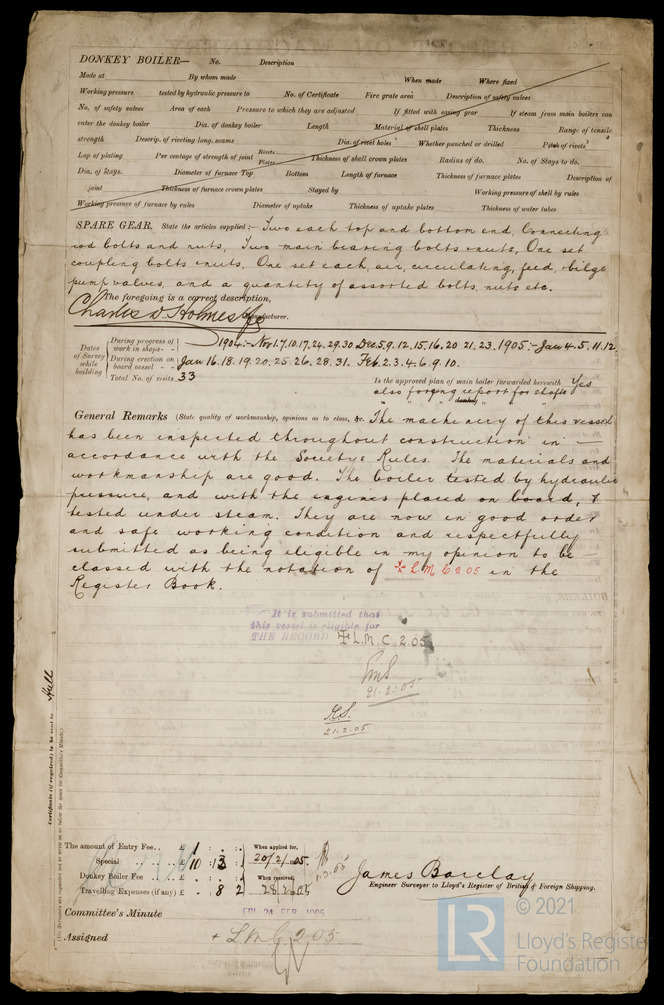 DONKEY BOILER— No. Description
Made at By whom made When made Where fixed
Working pressure tested by hydraulic pressure to No. of Certificate Fire grate area Description of safety valves
No. of safety valves Area of each Pressure to which they are adjusted If fitted with easing gear If steam from main boilers can
enter the donkey boiler Dia. of donkey boiler Length Material of shell plates Thickness Range of tensile
strength Descrip. of riveting long. seams Dia. of rivet holes Whether punched or drilled Pitch of rivets
Lap of plating Per centage of strength of joint Rivets Plates Thickness of shell crown plates Radius of do. No. of Stays to do.
Dia. of stays. Diameter of furnace Top Bottom Length of furnace Thickness of furnace plates Description of
joint Thickness of furnace crown plates Stayed by Working pressure of shell by rules
Working pressure of furnace by rules Diameter of uptake Thickness of uptake plates Thickness of water tubes
SPARE GEAR. State the articles supplied:— Two each top and bottom end, Connecting
rod bolts and nuts, Two main bearing bolts & nuts, One set
coupling bolts & nuts, One set each, air, circulating, feed, & bilge
pump valves, and a quantity of assorted bolts, nuts etc.
The foregoing is a correct description,
Charles D Holmes & Co Manufacturer.
Dates of Survey while building
During progress of work in shops - - 1904:- Nov 1.7.10.17.24.29.30 Dec.5.9.12.15.16.20 21.23. 1905:- Jan 4.5.11.12.
During erection on board vessel - - Jan 16.18.19.20.25.26.28.31. Feb 2.3.4.6.9.10.
Total No. of visits 33
Is the approved plan of main boiler forwarded herewith Yes
also forging report for shafts
General Remarks (State quality of workmanship, opinions as to class, &c. The machinery of this vessel
has been inspected throughout construction in
accordance with the Societys Rules. The materials and
workmanship are good. The boiler tested by hydraulic
pressure, and with the engines placed on board, &
tested under steam. They are now in good order
and safe working condition and respectfully
submitted as being eligible in my opinion to be
classed with the notation of + L M C 2 05 in the
Register Book.
It is submitted that
this vessel is eligible for
THE RECORD + L.M.C. 2.05
21.2.05
21.2.05
Certificate (if required) to be sent to Hull
The amount of Entry Fee.. £ 1 : :
Special .. .. £ 10 : 13 :
Donkey Boiler Fee .. .. £ : :
Travelling Expenses (if any) £ : 8 : 2
When applied for, 20/2/05
When received, 28/2/05
James Barclay
Engineer Surveyor to Lloyd's Register of British & Foreign Shipping.
Committee's Minute FRI. 24 FEB 1905
Assigned + L M C 2.05
LR
© 2021
Lloyd's Register
Foundation